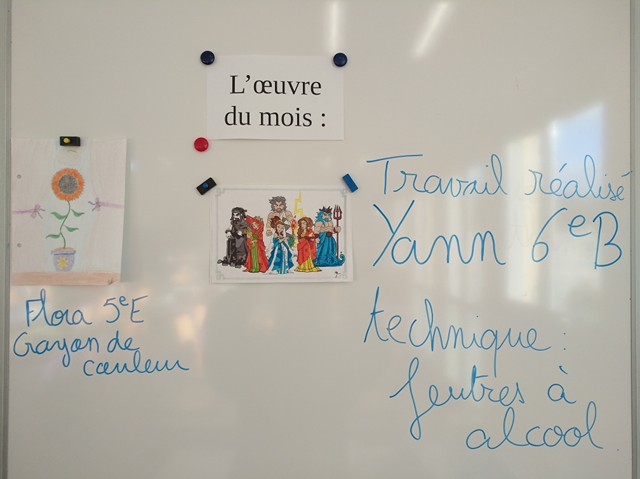 L'œuvre
du mois :
Travail réalisé
Yann 6eB
technique :
feutres à
alcool
Flora 5eE
Crayon de
couleur